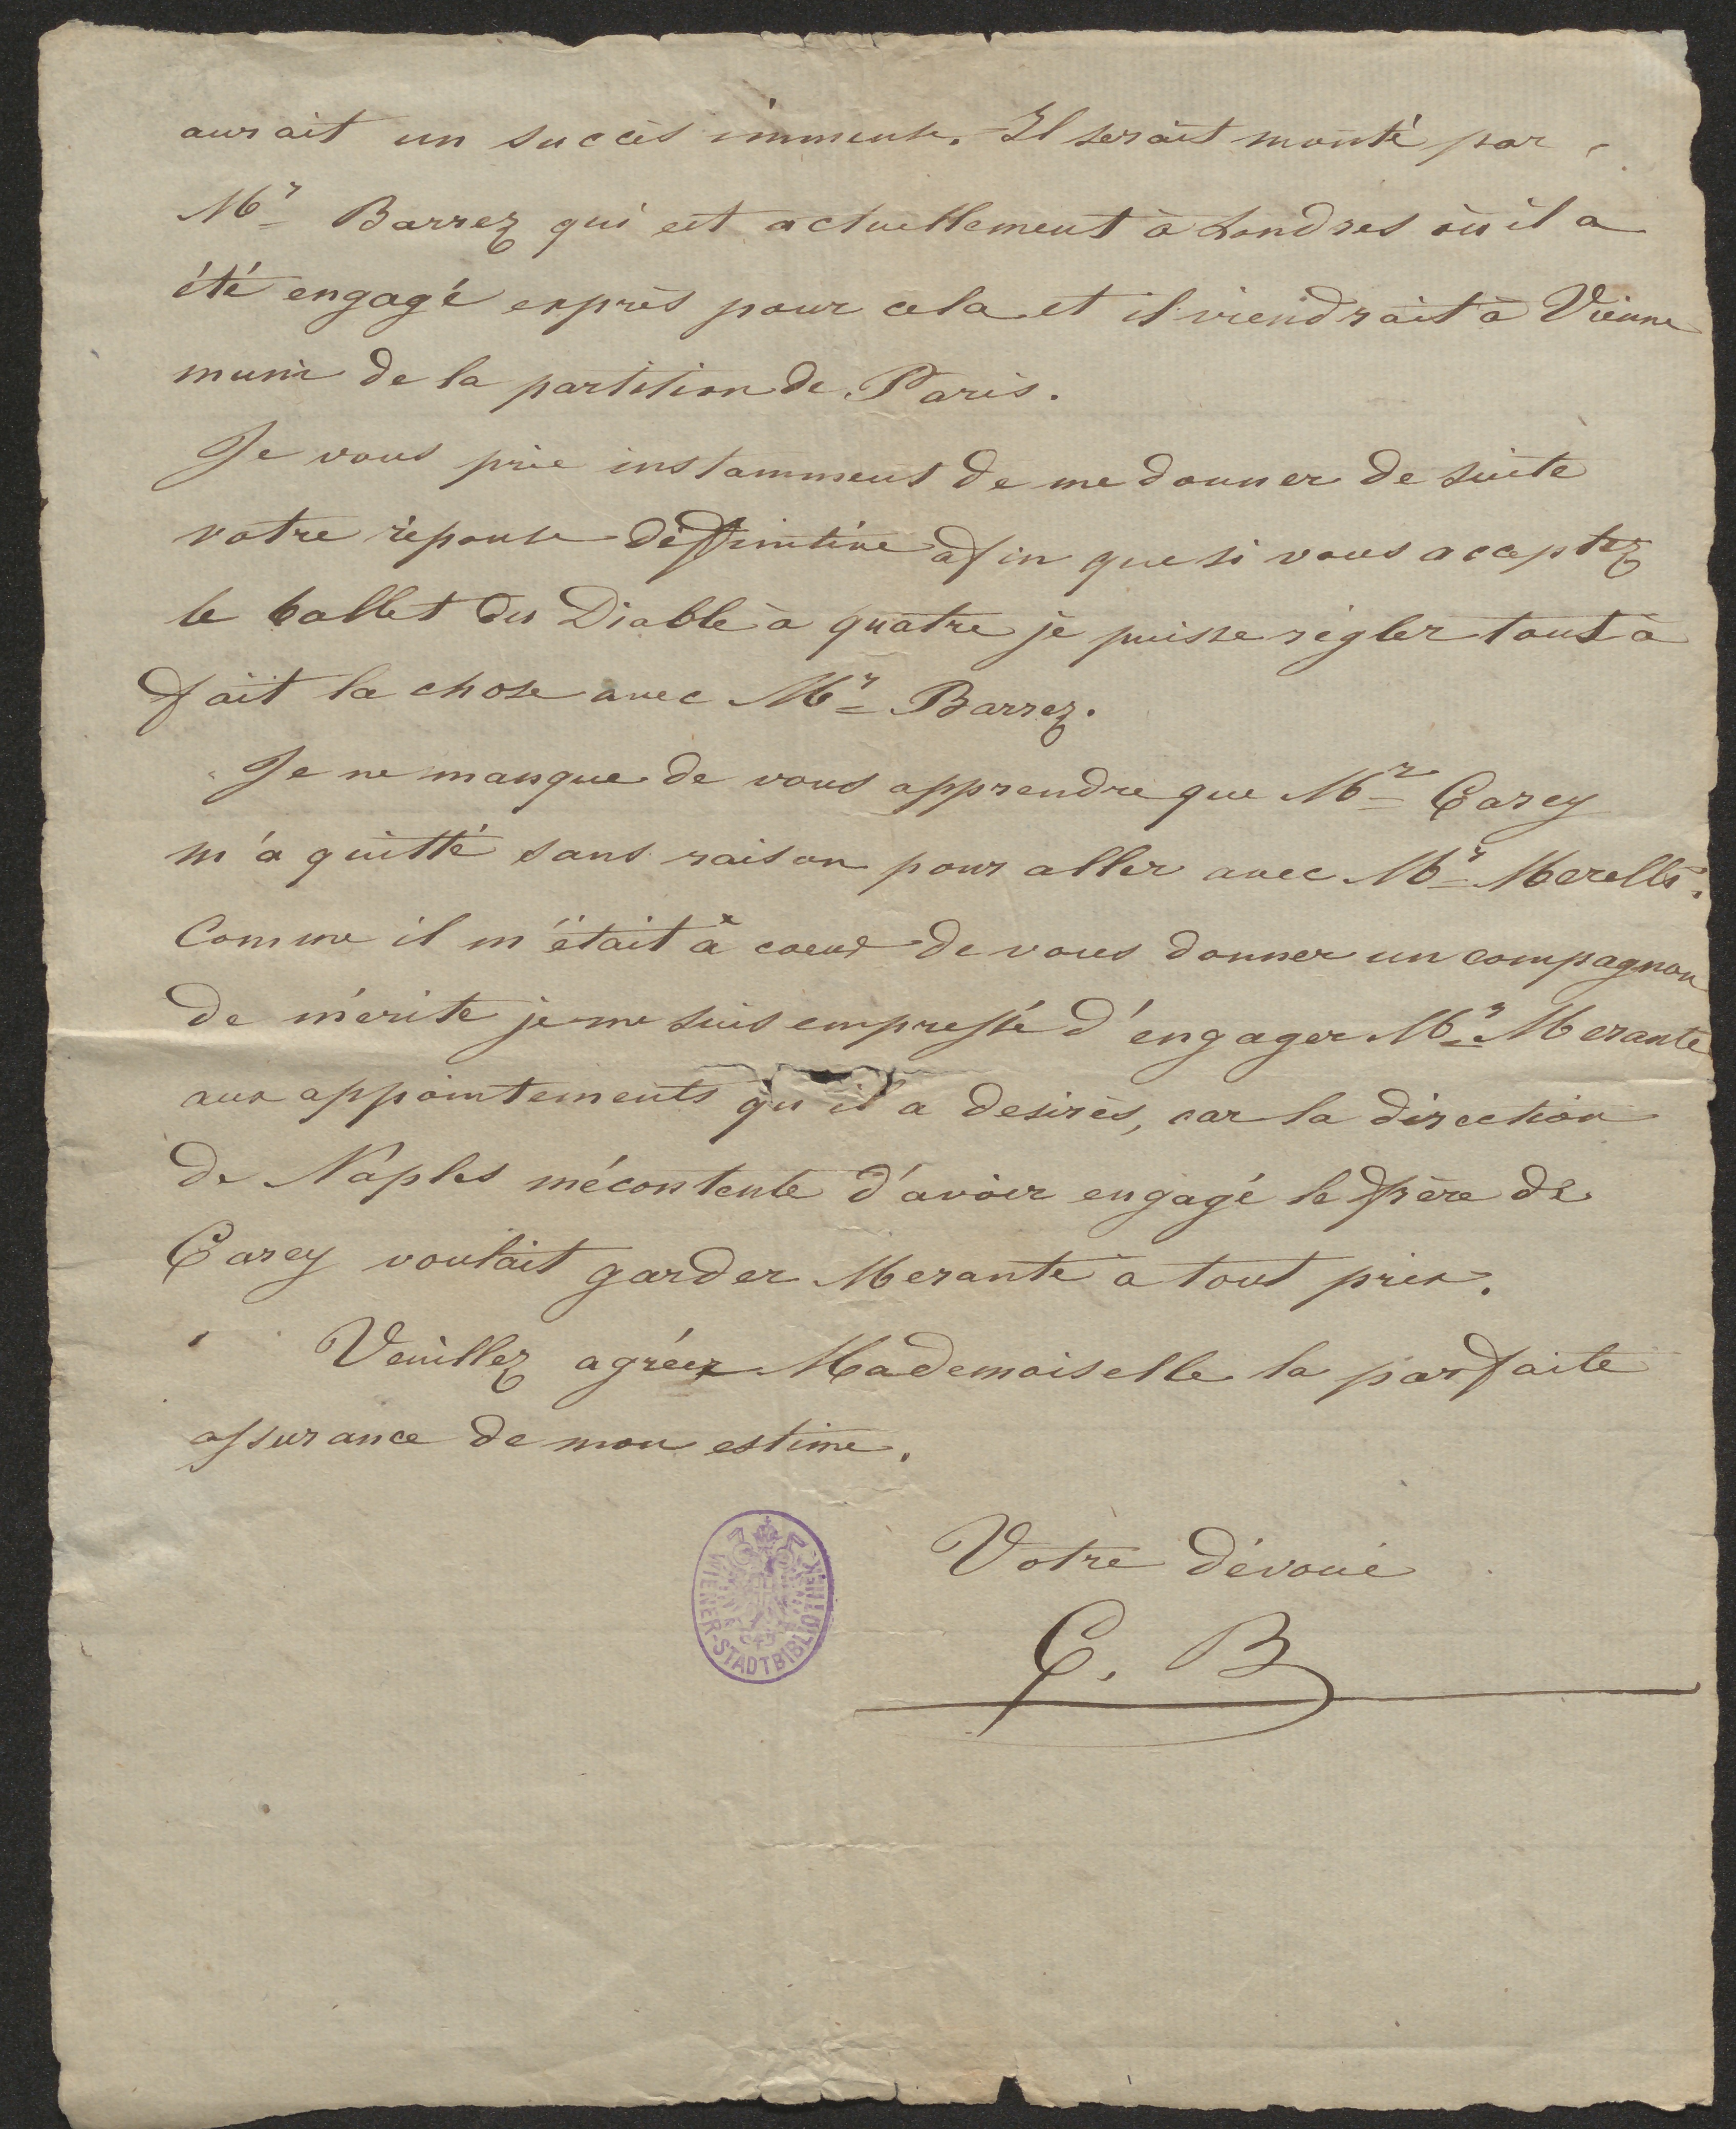 aurait un succès immense. Il serait monté par
Mr Barrez qui est actuellement à Londres où il a
été engagé exprès pour cela et il viendrait à Vienne
muni de la partition de Paris.
Je vous prie instamment de me donner de suite
votre réponse déffinitive afin que si vous acceptez
le ballet du Diable à quatre je puisse régler tout à
fait la chose avec Mr Barrez.
Je ne manque de vous apprendre que Mr Carey
m'a quitté sans raison pour aller avec Mr Merelli.
Comme il m'était à coeur de vous donner un compagnon
de mérite je me suis empressé d'engager Mr Merante
aux appointements qu'il a desirés, car la direction
de Naples mécontente d'avoir engagé le frère de
Carey voulait garder Merante à tout prix.
Veuillez agréer Mademoiselle la parfaite
assurance de mon estime.
Votre dévoué
C. B
WIENER-STADTBIBLIOTHEK